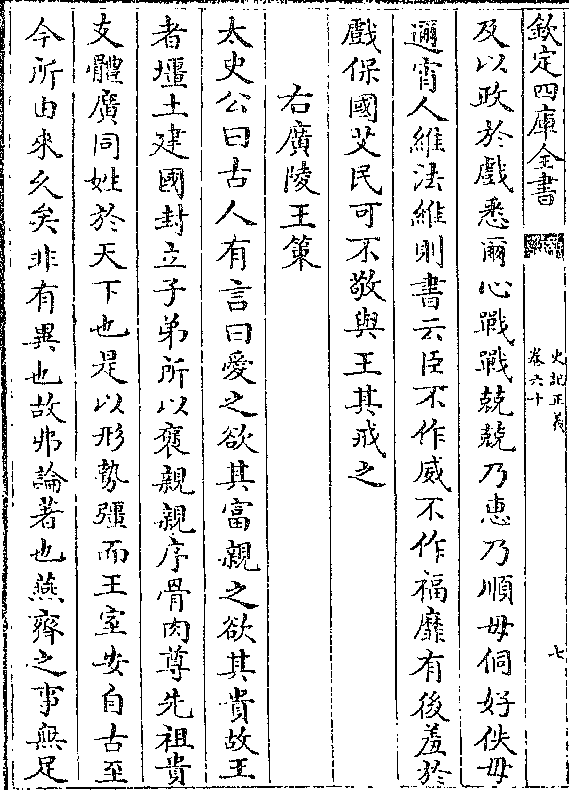 欽定四庫全書
史記正義
卷六十
七
及以政於戲悉爾心戰戰兢兢乃惠乃順毋侗好佚毋
邇宵人維法維則書云臣不作威不作福靡有後羞於
戲保國艾民可不敬與王其戒之
右廣陵王策
太史公曰古人有言曰愛之欲其富親之欲其貴故王
者壃土建國封立子弟所以褒親親序骨肉尊先祖貴
支體廣同姓於天下也是以形勢彊而王室安自古至
今所由來久矣非有異也故弗論著也燕齊之事無足